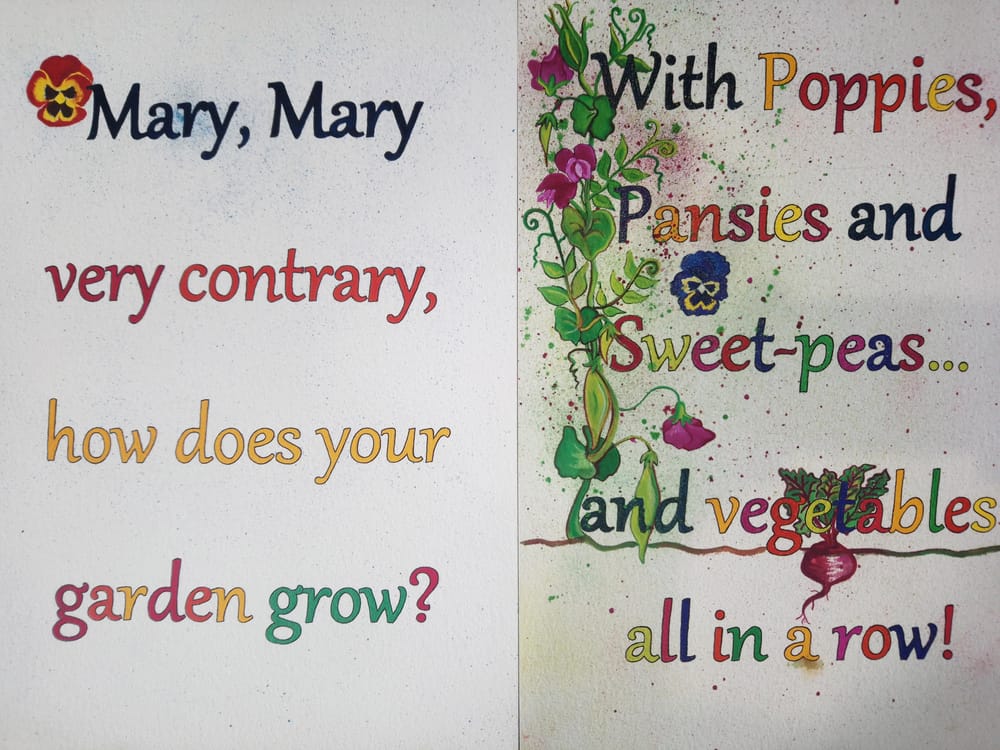 Mary, Mary
very contrary,
how does your
garden grow?
With Poppies,
Pansies and
Sweet-peas...
and vegetables
all in a row!